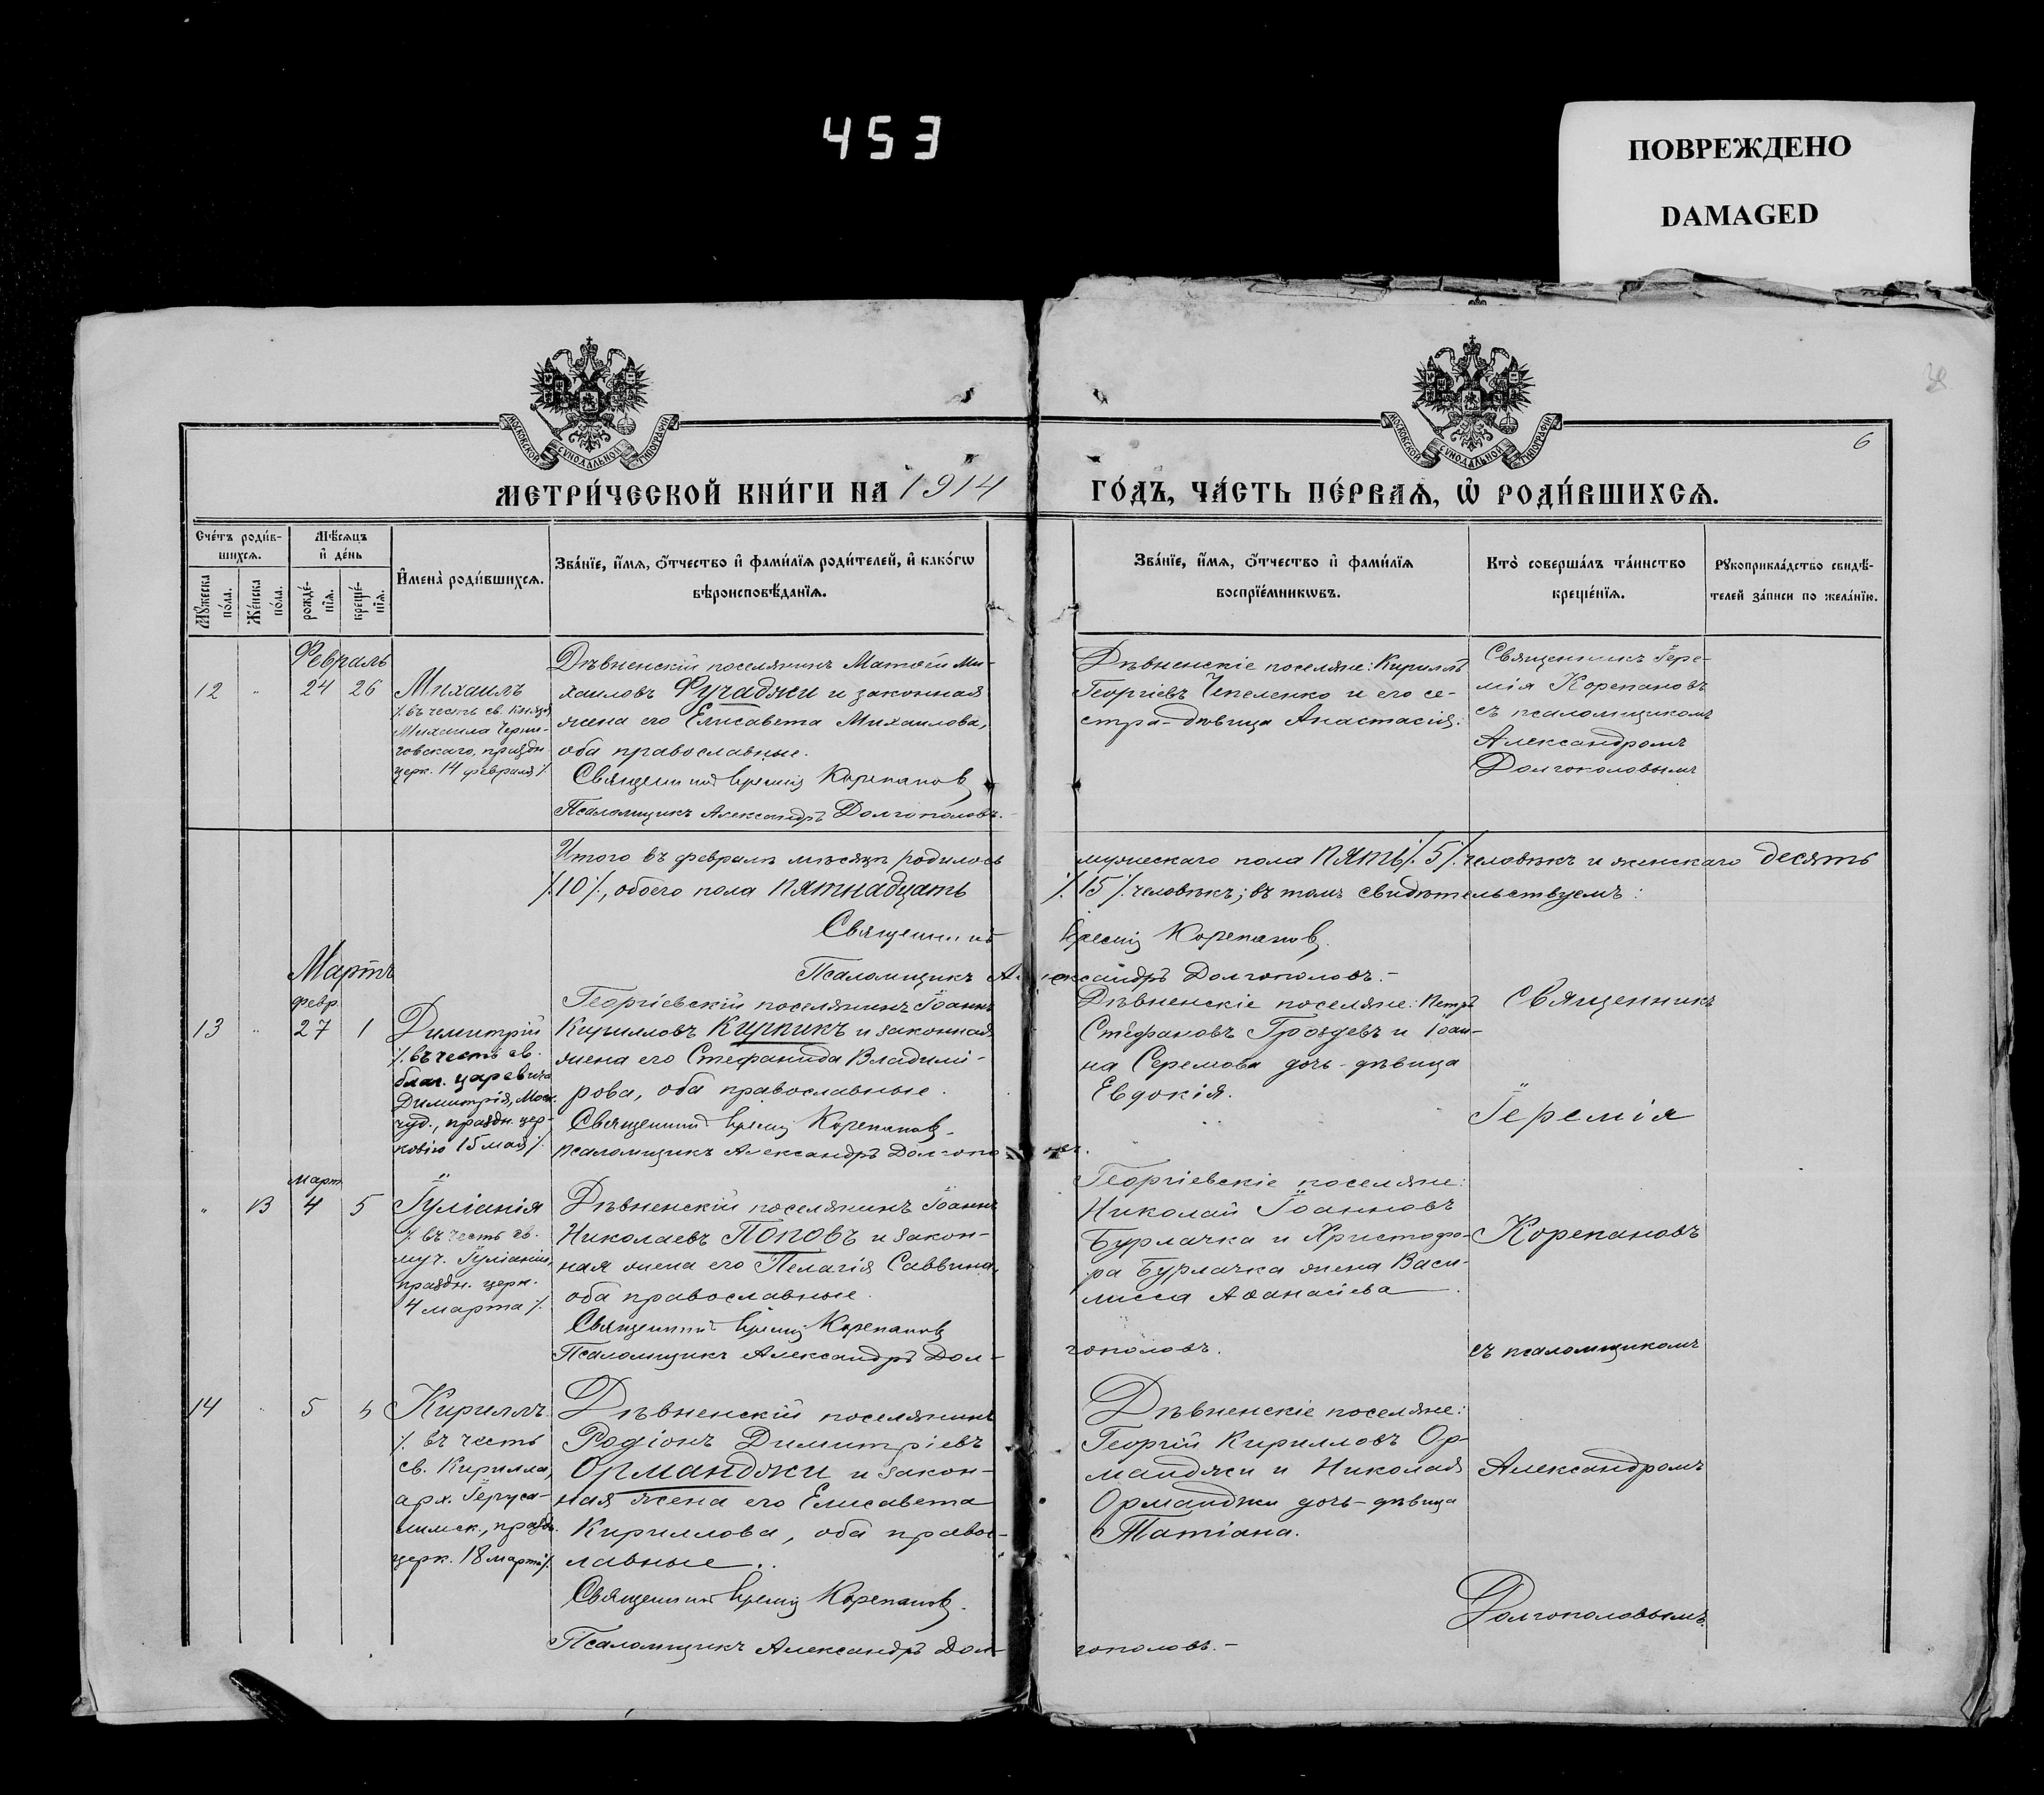 453
ПОВРЕЖДЕНО
DAMAGED
МОСКОВСКОЙ СѴНОДАЛЬНОЙ ТИПОГРАФІИ
МОСКОВСКОЙ СѴНОДАЛЬНОЙ ТИПОГРАФІИ
6
МЕТРИ́ЧЕСКОЙ КНИ́ГИ НА 1914
ГО́ДЪ, ЧА́СТЬ ПЕ́РВАѦ, Ѡ҆ РОДИ́ВШИХСѦ.
Сче́тъ роди́в-
шихсѧ.
Мѣ́сѧцъ
и҆ де́нь
Мꙋ́жеска
по́ла.
Же́нска
по́ла.
рожде́-
нїѧ.
креще́-
нїѧ.
И҆мена̀ роди́вшихсѧ.
Зва́нїе, и҆́мѧ, ѻ҆́тчество и҆ фами́лїѧ роди́телей, и҆ како́гѡ
вѣроисповѣ́данїѧ.
Зва́нїе, и҆́мѧ, ѻ҆́тчество и҆ фами́лїѧ
воспрїе́мникѡвъ.
Кто̀ соверша́лъ та́инство
креще́нїѧ.
Рꙋкоприкла́дство свидѣ́-
телей за́писи по жела́нїю.
Февраль
12 " 24 26 Михаилъ
/. въ честь св. князя
Михаила Черни-
говскаго, праздн.
церк. 14 февраля /.
Дѣвненскій поселянинъ Матѳей Ми-
хаиловъ Фучаджи и законная
жена его Елисавета Михаилова,
оба православные.
Священникъ Іеремія Корепановъ
Псаломщикъ Александръ Долгополовъ.-
Дѣвненскіе поселяне: Кириллъ
Георгіевъ Чепеленко и его се-
стра-дѣвица Анастасія.
Священникъ Іере-
мія Корепановъ
съ псаломщикомъ
Александромъ
Долгополовымъ
Итого въ февралѣ мѣсяцѣ родилось
мужескаго пола пять /. 5 /. человѣкъ и женскаго десять
/. 10 /., обоего пола пятнадцать
/. 15 /. человѣкъ; въ томъ свидѣтельствуемъ:
Священникъ Іеремія Корепановъ.
Псаломщикъ Александръ Долгополовъ.-
Мартъ
февр.
13 " 27 1 Димитрій
/. въ честь св.
благ. царевича
Димитрія, Моск.
чуд., праздн. цер-
ковію 15 мая /.
Георгіевскій поселянинъ Іоаннъ
Кирилловъ Кирпикъ и законная
жена его Стефанида Владимі-
рова, оба православные.
Священникъ Іеремія Корепановъ.
псаломщикъ Александръ Долгополовъ.
Дѣвненскіе поселяне: Петръ
Стефановъ Гроздевъ и Іоан-
на Серемова дочь-дѣвица
Евдокія.
Священникъ
Іеремія
март.
" 13 4 5 Іуліанія
/. въ честь св.
муч. Іуліаніи,
праздн. церк.
4 марта /.
Дѣвненскій поселянинъ Іоаннъ
Николаевъ Поповъ и закон-
ная жена его Пелагія Саввина,
оба православные.
Священникъ Іеремія Корепановъ
Псаломщикъ Александръ Дол-
гополовъ.
Георгіевскіе поселяне:
Николай Іоанновъ
Бурлачка и Христофо-
ра Бурлачка жена Васи-
лисса Аѳанасіева
Корепановъ
съ псаломщикомъ
14 " 5 5 Кириллъ
/. въ честь
св. Кирилла,
арх. Іеруса-
лимск., праздн.
церк. 18 марта /.
Дѣвненскій поселянинъ
Родіонъ Димитріевъ
Орманджи и закон-
ная жена его Елисавета
Кириллова, оба правос-
лавные.
Священникъ Іеремія Корепановъ.
Псаломщикъ Александръ Дол-
гополовъ.-
Дѣвненскіе поселяне:
Георгій Кирилловъ Ор-
манджи и Николая
Орманджи дочь-дѣвица
Татіана.
Александромъ
Долгополовымъ.